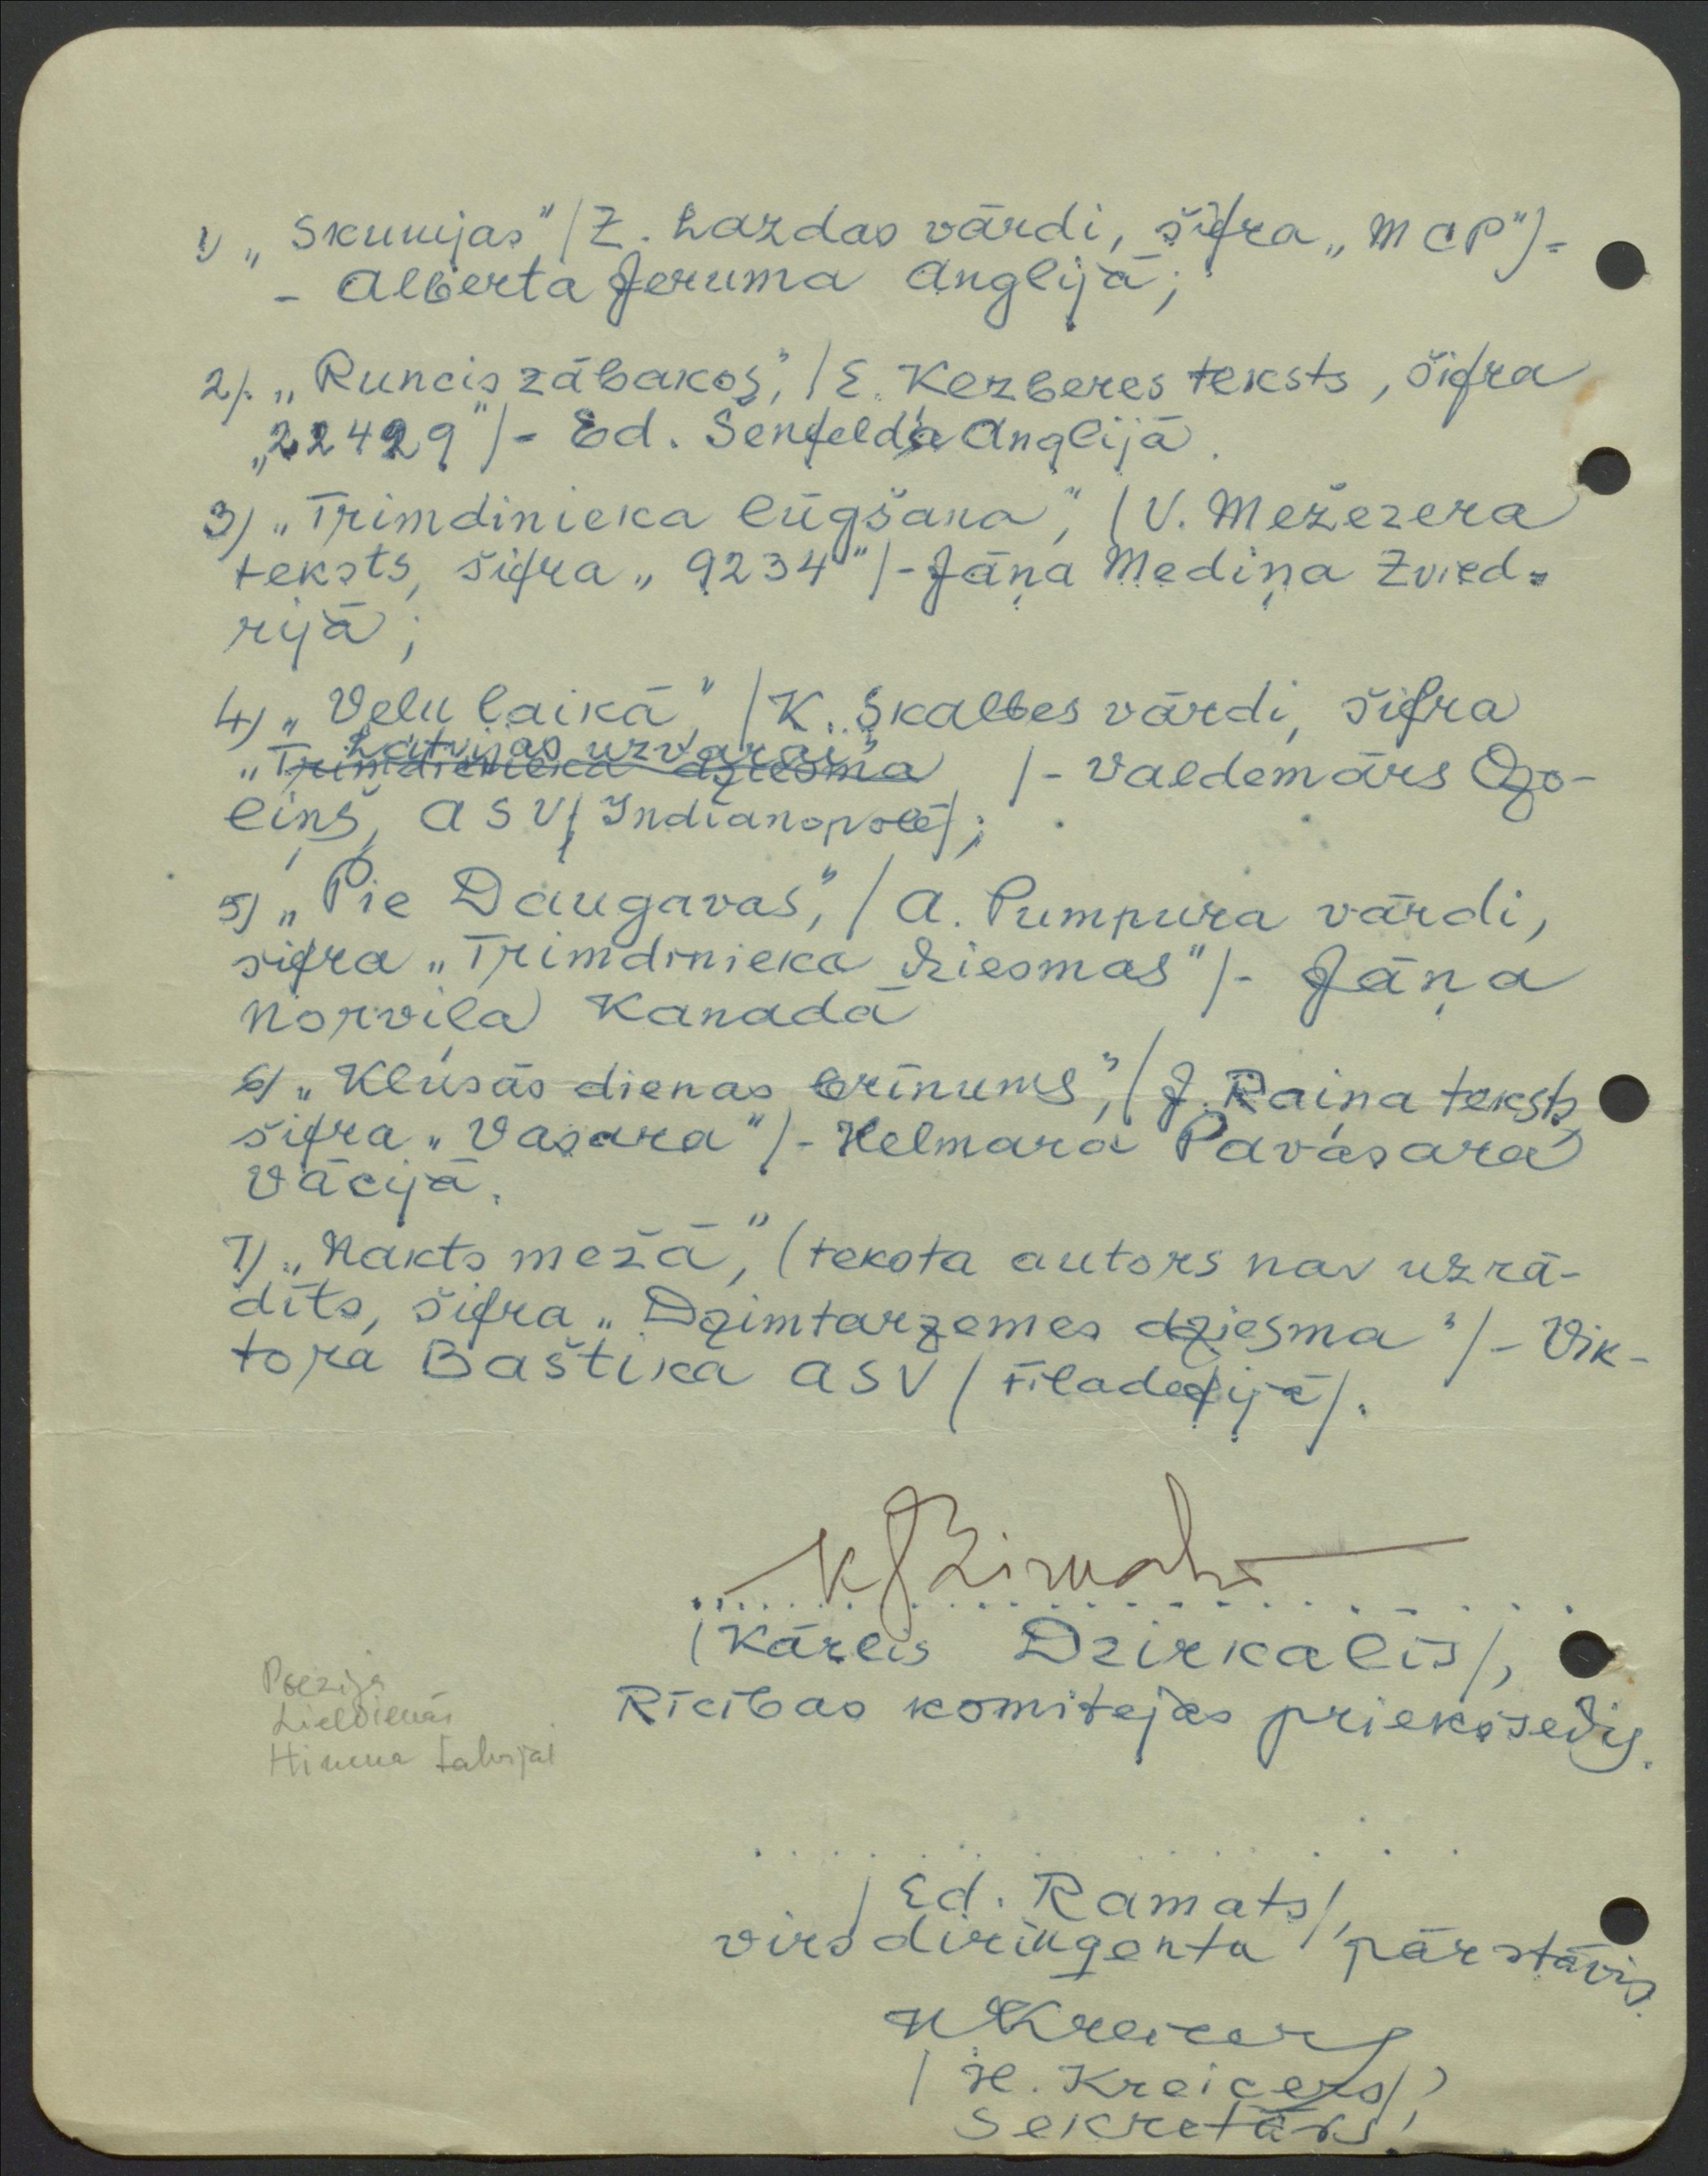 1) „Skumjas" /Z. Lazdas vārdi, šifra „MCP"/-
- Alberta Jeruma Anglijā;
2/. „Runcis zābakos," /E. Ķezberes teksts, šifra
„22429"/- Ed. Šenfelda Anglijā.
3) „Trimdinieka lūgšana," /V. Mežezera
teksts, šifra „9234"/- Jāņa Mediņa Zvied-
rijā;
4) „Veļu laikā," /K. Skalbes vārdi, šifra
Latvijas uzvarai"
„Trimdienieka dziesma /- Valdemārs Ozo-
liņš, ASV/Indianopolē/;
5) „Pie Daugavas," /A. Pumpura vārdi,
šifra „Trimdinieka dziesmas"/- Jāņa
Norviļa Kanadā
6) „Klusās dienas brīnums," /J. Raiņa teksts
šifra „Vasara"/- Helmara Pavasara
Vācijā.
7) „Nakts mežā," (teksta autors nav uzrā-
dīts, šifra „Dzimtarzemes dziesma"/- Vik-
tora Baštika ASV /Filadelfijā/.
/Kārlis Dzirkalis/,
Rīcības komitejas priekšsēdis.
Poezija
Lieldienās
Himna Latvijai
/Ed. Ramats/,
virsdiringentu pārstāvis.
H Kreicers
/H. Kreicers/,
sekretārs.